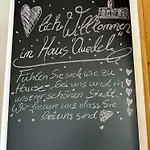 Herzlich Willkommen
im Haus "Quedel"
Fühlen Sie sich wie zu
Hause - bei uns und in
unserer schönen Stadt.
Wir freuen uns dass Sie
bei uns sind